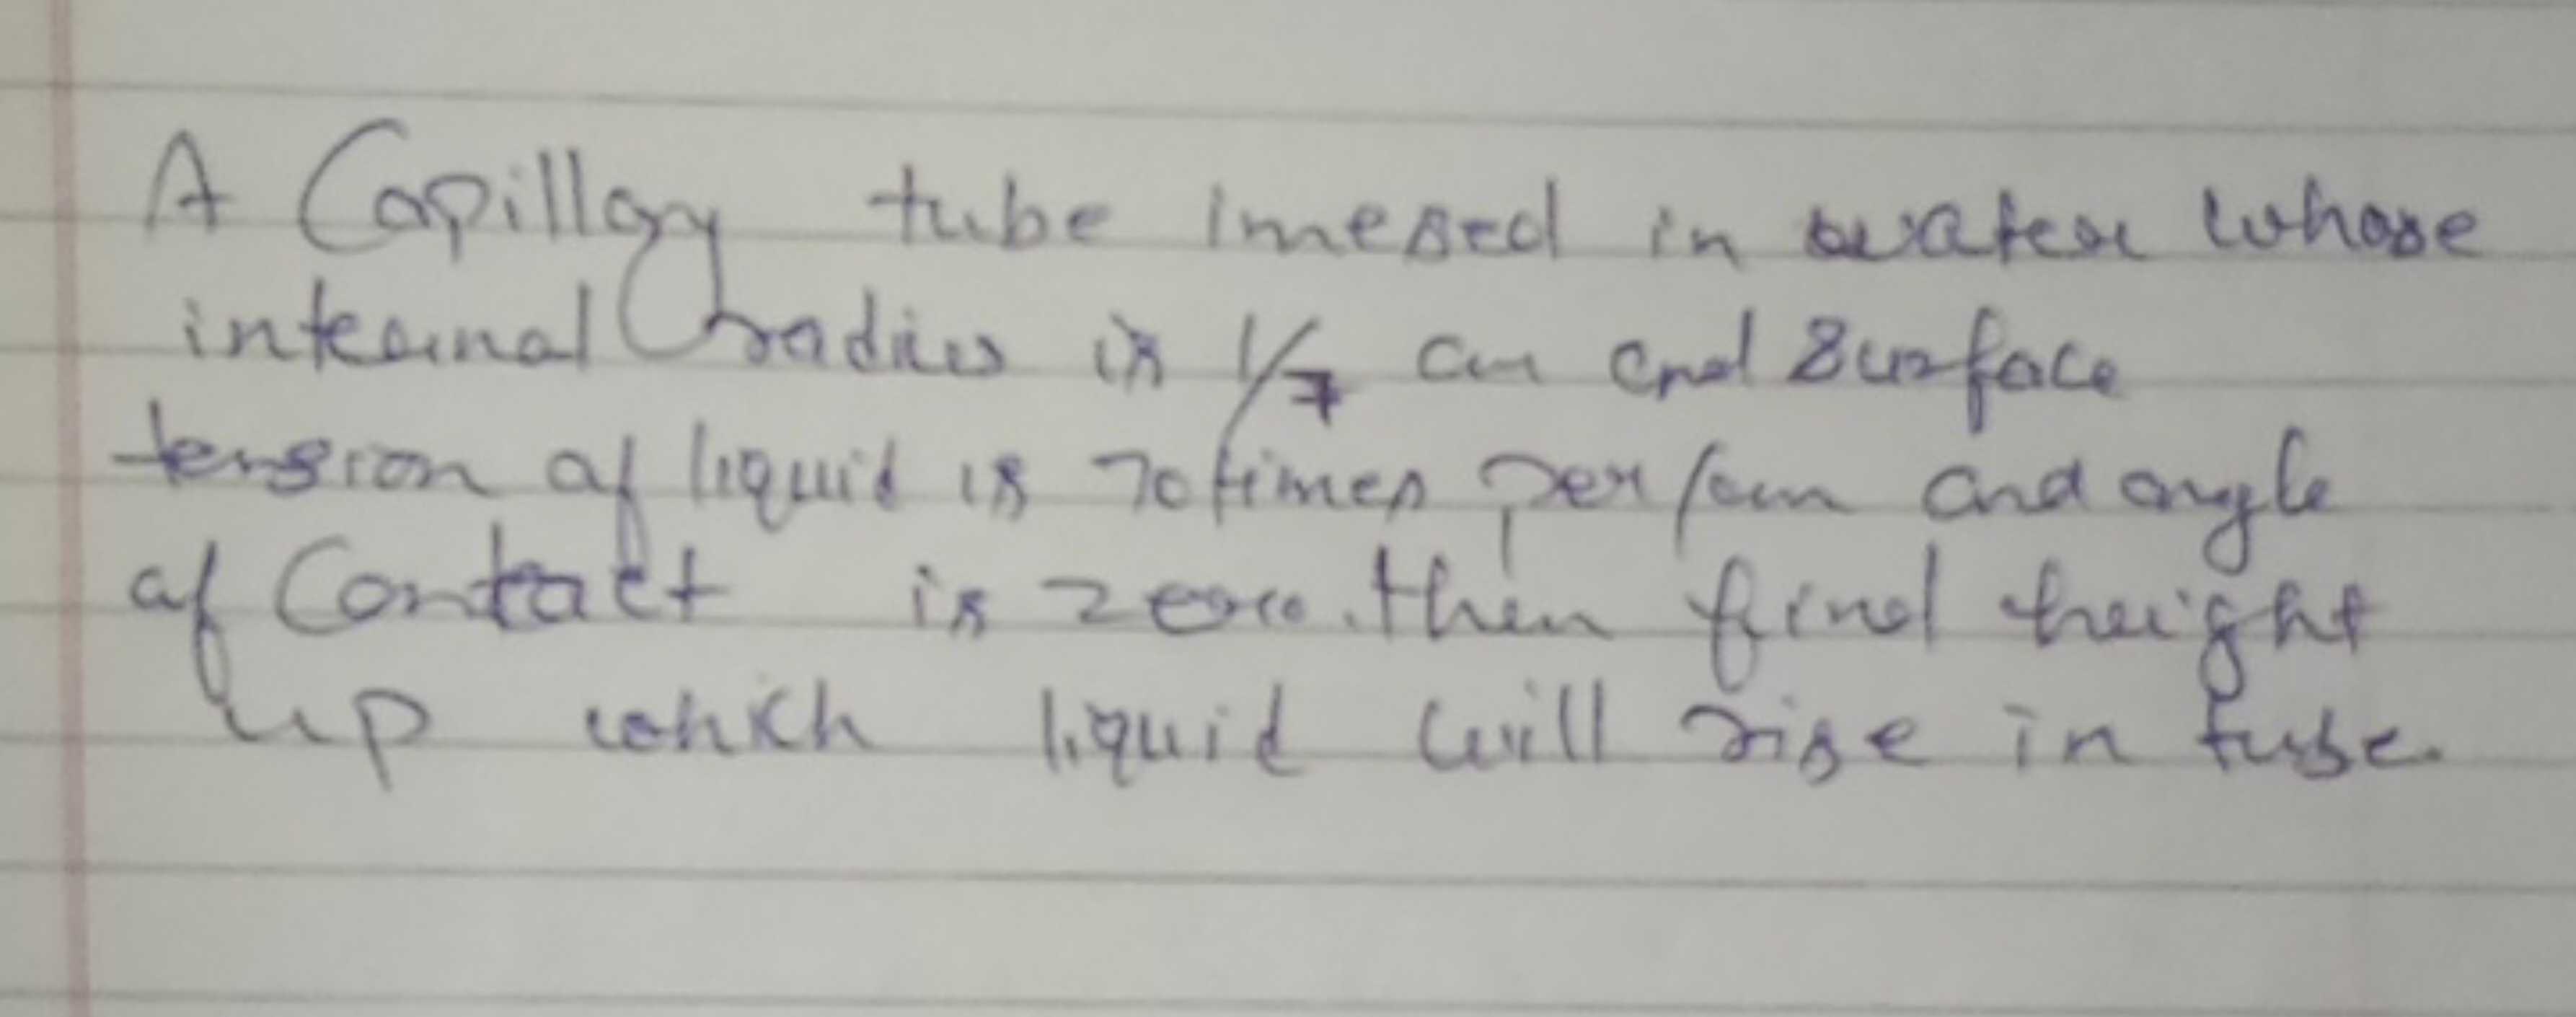 A Capillary tube imersed in water whose
internal radius is 1/7 cm and Surface
tension of liquid is 70 times per/cm and angle
of Contact is zero. then find height
up which liquid will rise in tube.